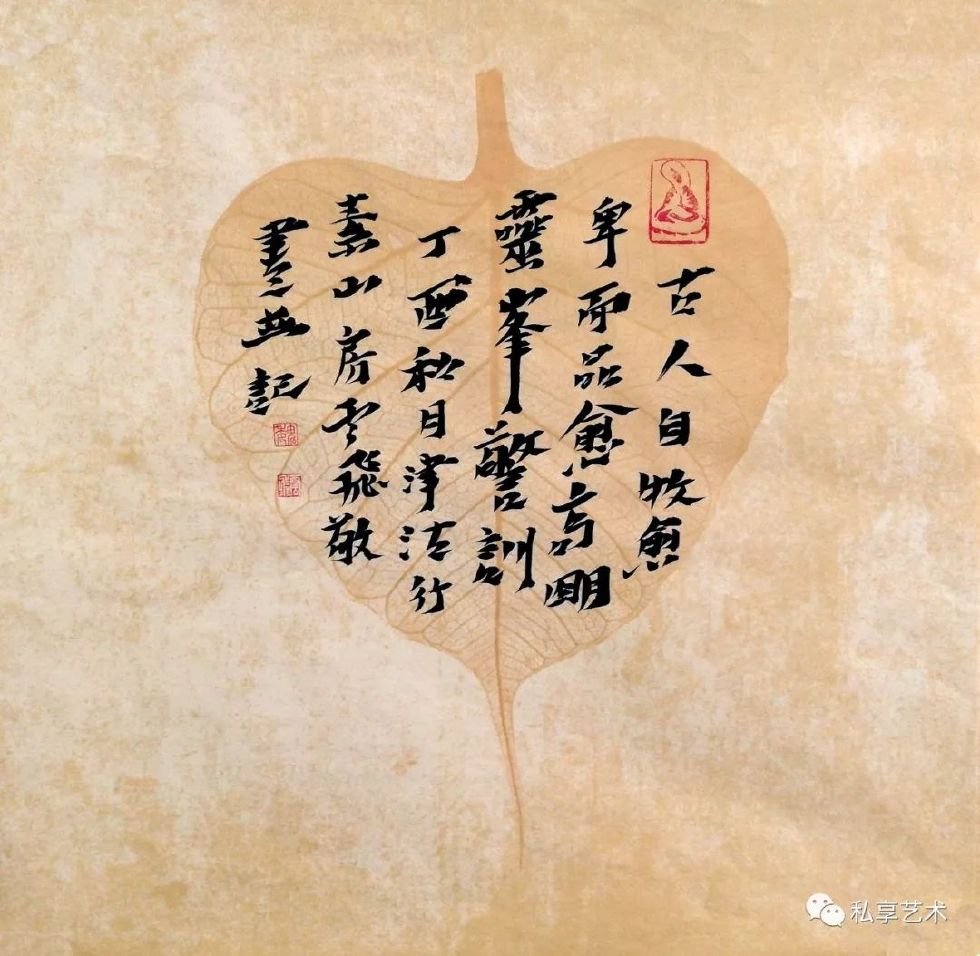 古人自牧愈
卑而品愈高明
靈峯警訓
丁酉秋月津沽行
素山房云飛敬
書並記
私享艺术